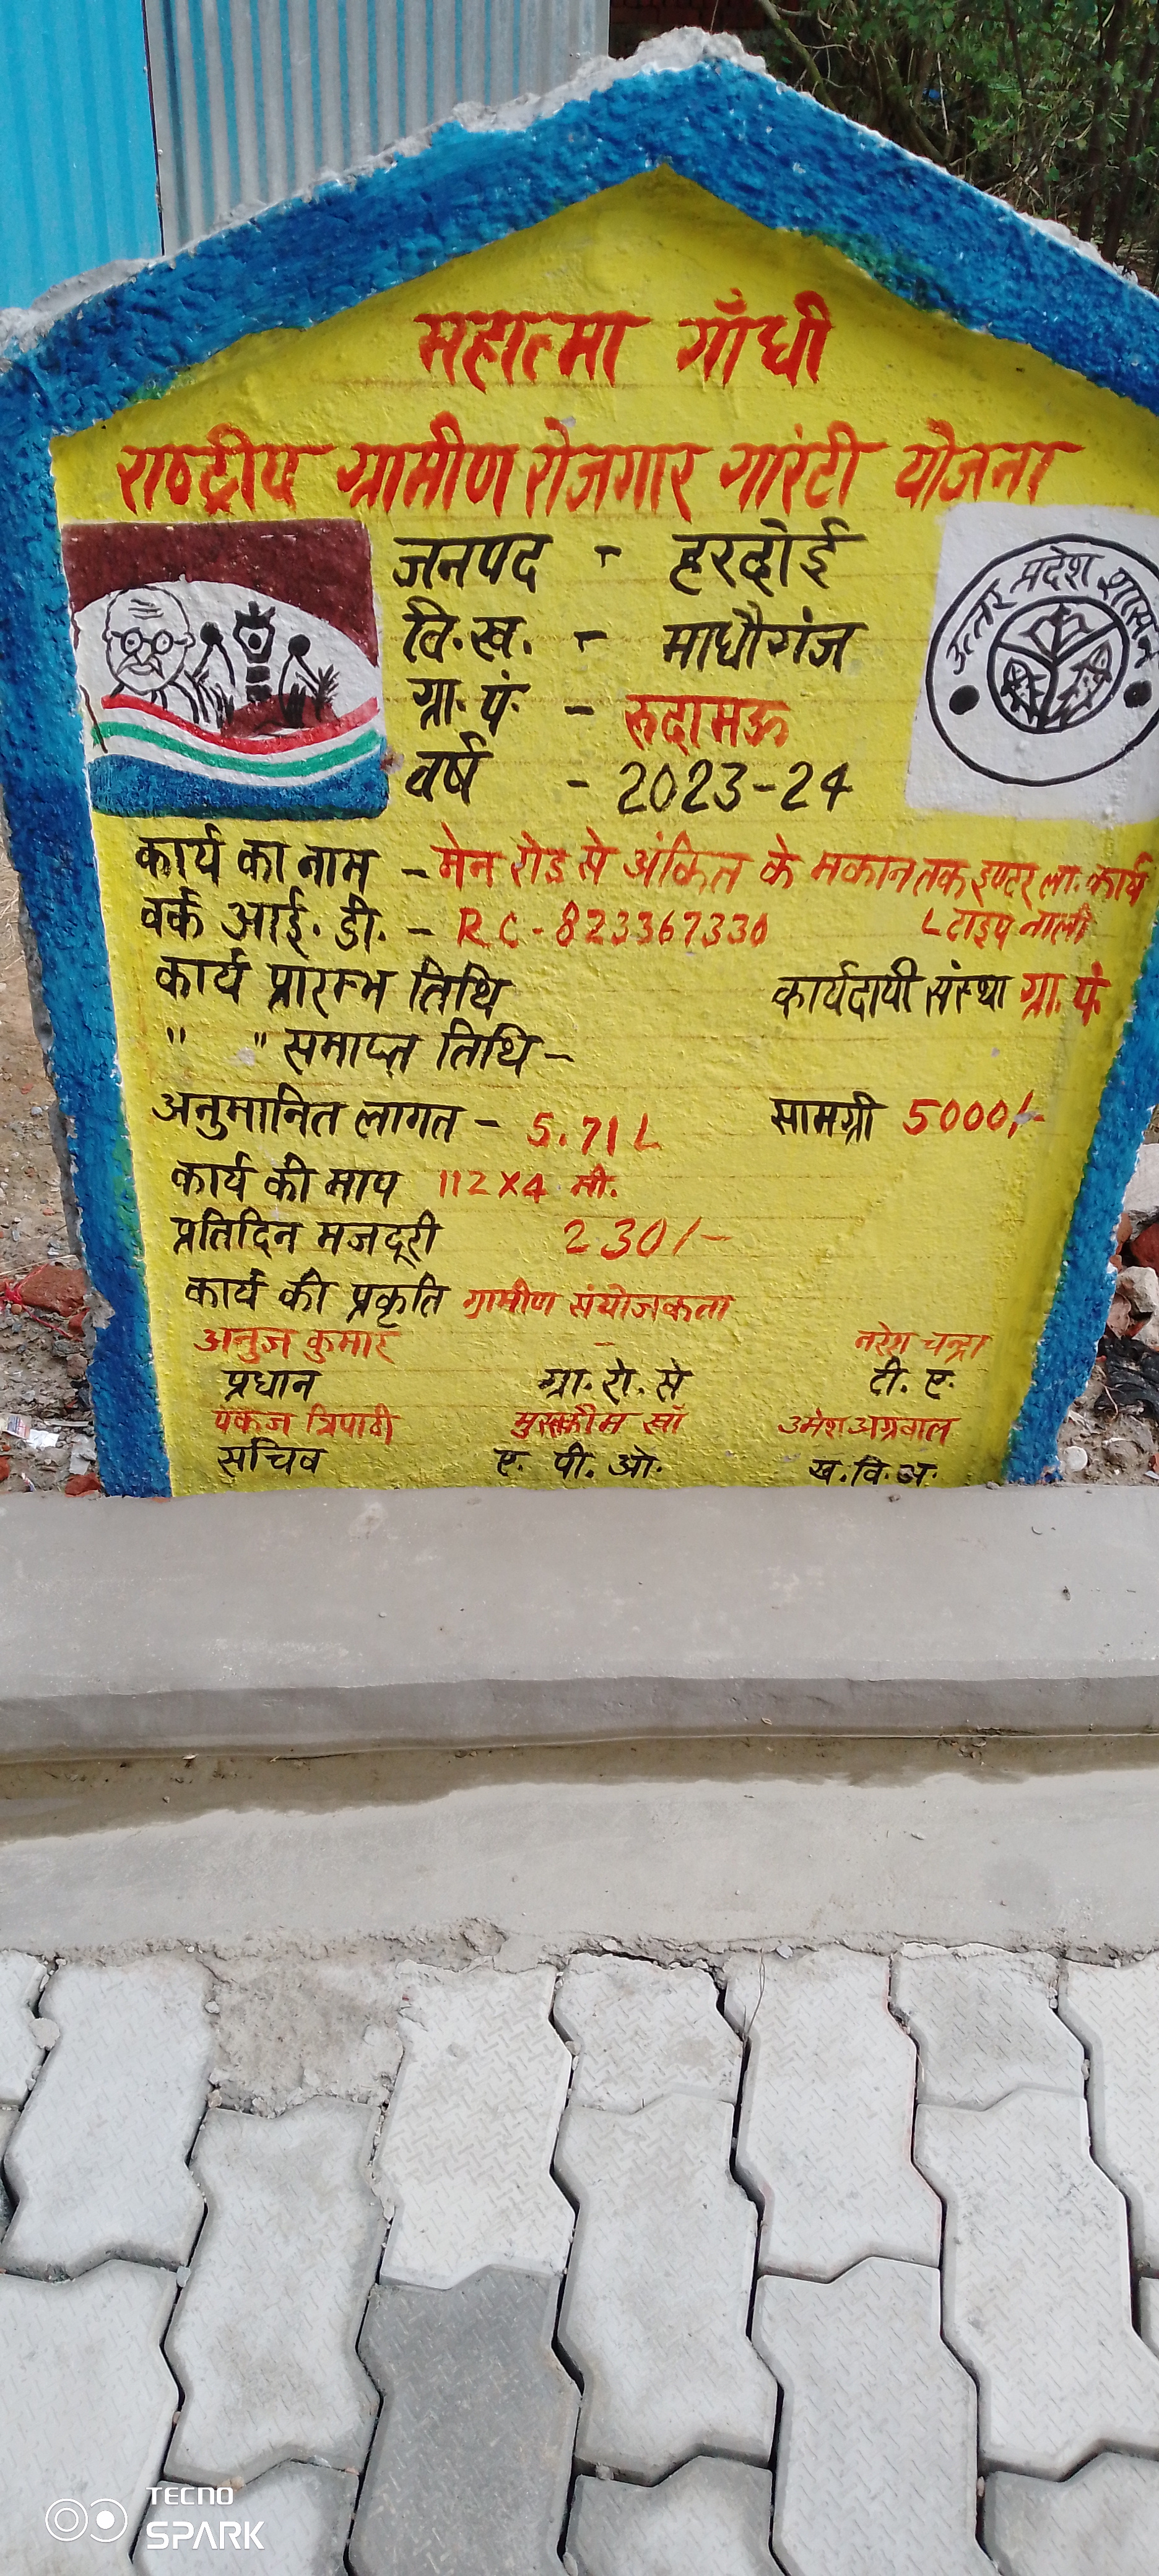 महात्मा गाँधी
राष्ट्रीय ग्रामीण रोजगार गारंटी योजना
जनपद - हरदोई
वि.ख. - माधौगंज
ग्रा.पं. - रुदामऊ
वर्ष - 2023-24
उत्तर प्रदेश शासन
कार्य का नाम - मेन रोड से अंकित के मकान तक इण्टर ला. कार्य
L टाइप नाली
वर्क आई.डी. - RC-823367330
कार्य प्रारम्भ तिथि कार्यदायी संस्था ग्रा.पं.
" " समाप्त तिथि -
अनुमानित लागत - 5.71L सामग्री 5000/-
कार्य की माप 112X4 मी.
प्रतिदिन मजदूरी 230/-
कार्य की प्रकृति ग्रामीण संयोजकता
अनुज कुमार - नरेश चन्द्रा
प्रधान ग्रा.रो.से टी.ए.
पंकज त्रिपाठी खाँ उमेश अग्रवाल
सचिव ए.पी.ओ. ख.वि.अ.
TECNO
SPARK